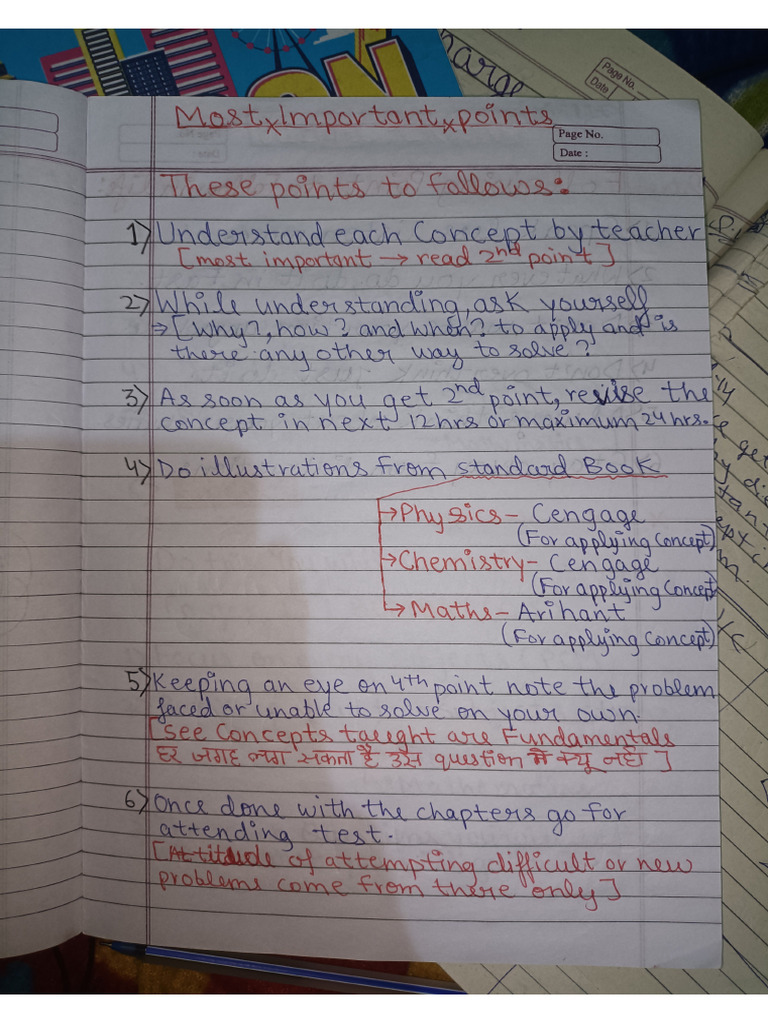 Most x Important x points
Page No.
Date :
These points to follows:
1) Understand each Concept by teacher
[most important → read 2nd point]
2) While understanding, ask yourself
→ [Why?, how? and when? to apply and is
there any other way to solve?
3) As soon as you get 2nd point, revise the
concept in next 12hrs or maximum 24hrs.
4) Do illustrations from standard Book
→ Physics - Cengage
(For applying concept)
→ Chemistry - Cengage
(For applying Concept
→ Maths - Arihant
(For applying Concept)
5) Keeping an eye on 4th point note the problem
faced or unable to solve on your own.
[See Concepts taught are Fundamentals
हर जगह लग सकता है उस question मे क्यू नही ]
6) Once done with the chapters go for
attending test.
[Attitude of attempting difficult or new
problems come from there only]
harge
Page No.
Date
ON